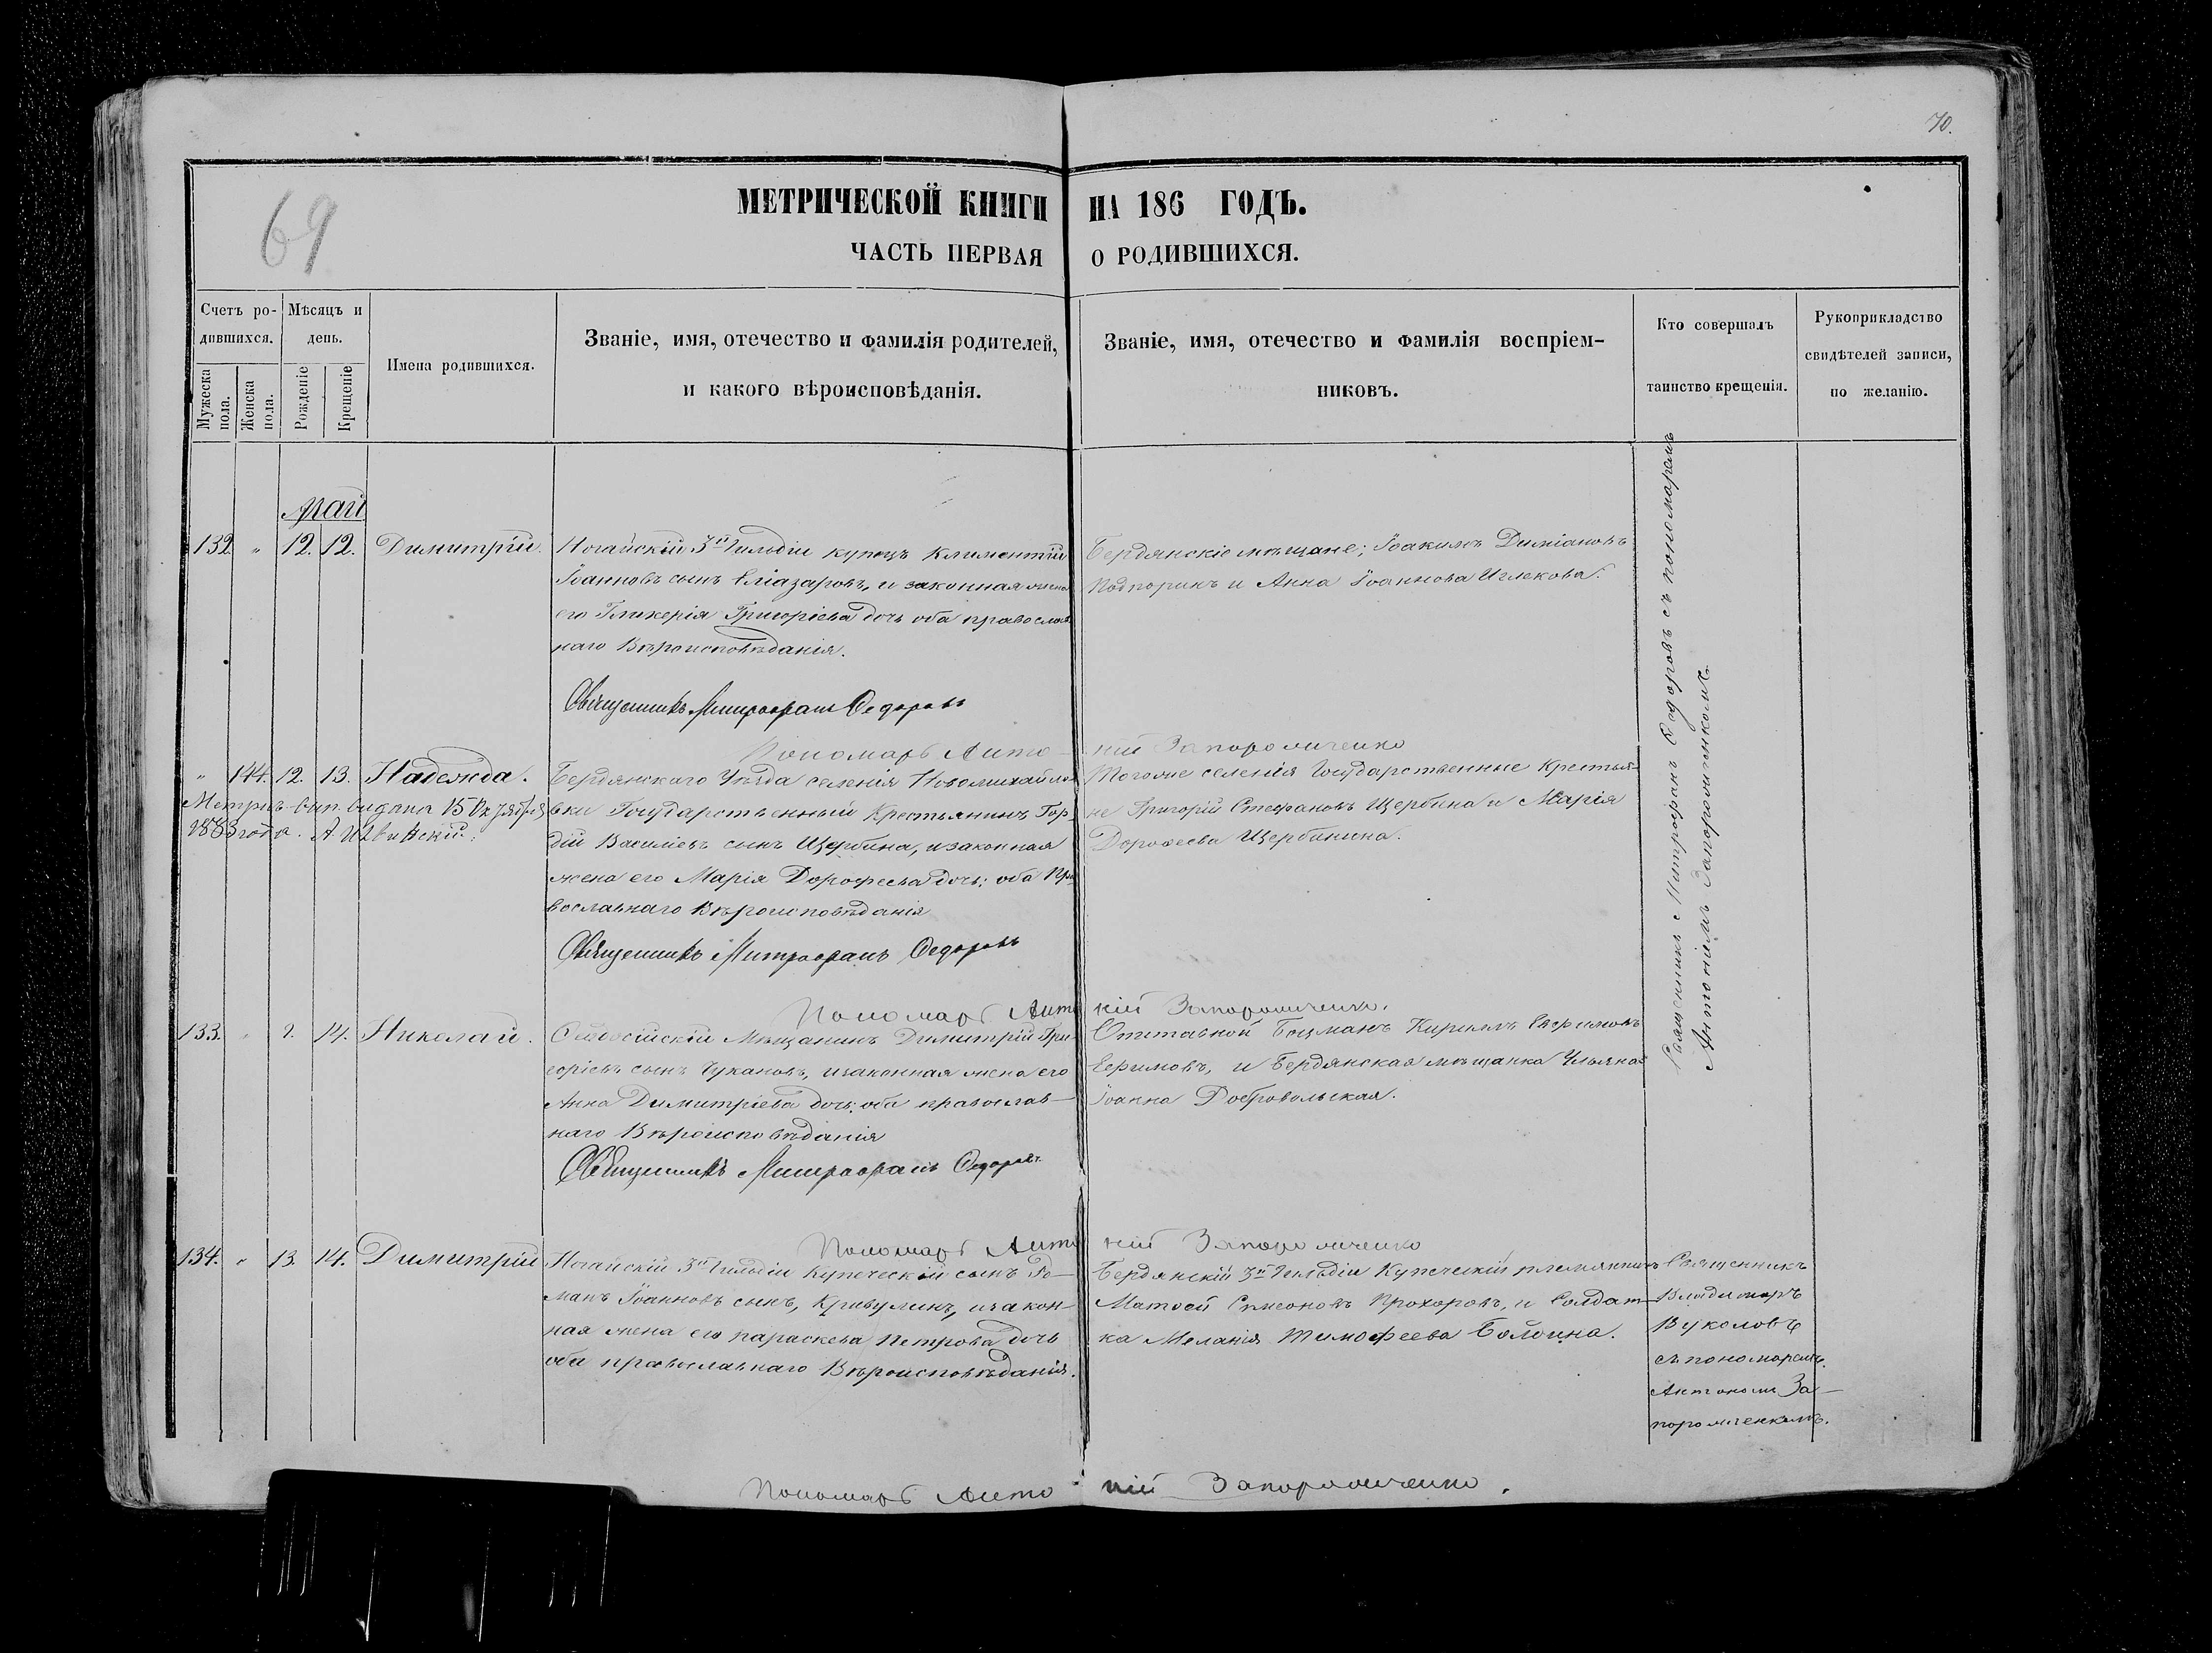 70.
69
МЕТРИЧЕСКОЙ КНИГИ НА 186 ГОДЪ.
ЧАСТЬ ПЕРВАЯ О РОДИВШИХСЯ.
Счетъ ро-
дившихся.
Мужеска
пола.
Женска
пола.
Мѣсяцъ и
день.
Рожденіе
Крещеніе
Имена родившихся.
Званіе, имя, отечество и фамилія родителей,
и какого вѣроисповѣданія.
Званіе, имя, отечество и фамилія воспріем-
никовъ.
Кто совершалъ
таинство крещенія.
Рукоприкладство
свидѣтелей записи,
по желанію.
Май
132 " 12. 12. Димитрій.
Ногайскій 3й Гильдіи купецъ Климентій
Іоанновъ сынъ Еліазаровъ, и законная жена
его Гликерія Григоріева дочь оба православ
наго Вѣроисповѣданія.
Бердянскіе мѣщане; Іоакимъ Диміановъ
Подпоринъ и Анна Іоаннова
Священникъ Митрофанъ Федоровъ
Пономарь Антоній Запорожченко
" 144. 12. 13. Надежда.
Метрич. вып. выдана 15 Октября
1883 года.
Бердянскаго Уѣзда селенія Новомихайло
вки Государственный Крестьянинъ Гор-
дій Василіевъ сынъ Щербина, и законная
жена его Марія Дорофеева дочь; оба Пра
вославнаго Вѣроисповѣданія
Тогоже селенія Государственные Крестья-
не Григорій Стефановъ Щербина и Марія
Дорофеева Щербинина.
Священникъ Митрофанъ Федоровъ
Пономарь Антоній Запорожченко.
133. " 2. 14. Николай.
Феодосійскій Мѣщанинъ Димитрій Гри-
горіевъ сынъ Чукановъ, и законная жена его
Анна Димитріева дочь; оба православ-
наго Вѣроисповѣданія
Отставной Боцманъ Кириллъ Ефимовъ
Ефимовъ, и Бердянская мѣщанка Ульяна
Іоанна Добровольская.
Священникъ Митрофанъ Федоровъ
Пономарь Антоній Запорожченко
Священникъ Митрофанъ Федоровъ съ пономаремъ
Антоніемъ Запорожченкомъ.
134. " 13. 14. Димитрій
Ногайскій 3й Гильдіи Купеческій сынъ Ро-
манъ Іоанновъ сынъ, Кривулинъ, и закон-
ная жена его Параскева Петрова дочь
оба православнаго Вѣроисповѣданія.
Бердянскій 3й Гильдіи Купеческій племянникъ
Матвей Симеоновъ Прохоровъ, и Солдат-
ка Меланія Тимофеева
Священникъ
Владимиръ
Вуколовъ
съ пономаремъ
Антономъ За-
порожченкомъ.
Пономарь Антоній Запорожченко.